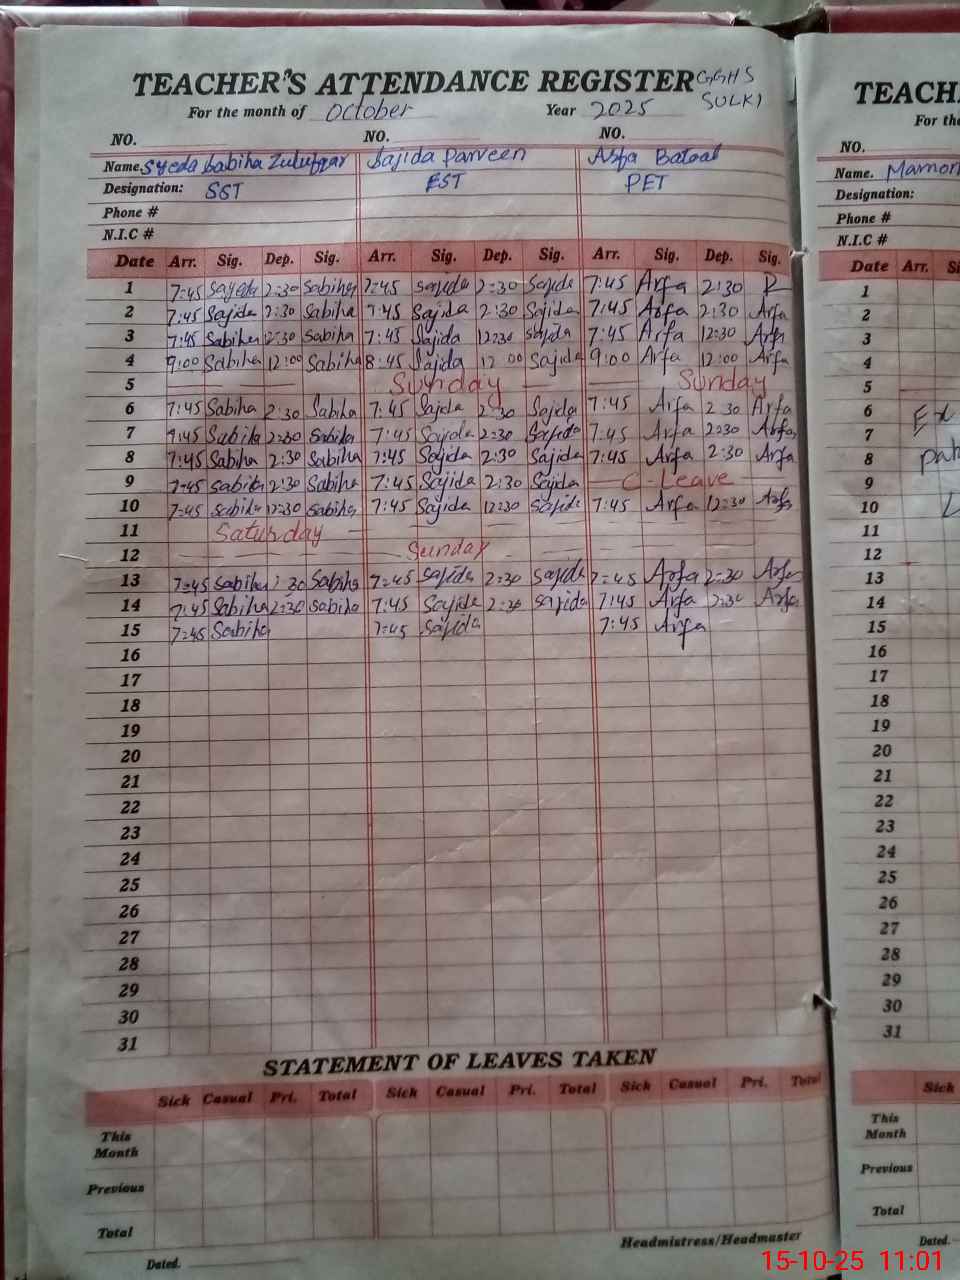 TEACHER'S ATTENDANCE REGISTER GGHS
For the month of October Year 2025 SULKI
NO. NO. NO.
Name. Syeda Sabiha Zulufqar Sajida Parveen Arfa Batool
Designation: SST EST PET
Phone #
N.I.C #
Date Arr. Sig. Dep. Sig. Arr. Sig. Dep. Sig. Arr. Sig. Dep. Sig.
1 7:45 Sayeda 2:30 Sabiha 7:45 Sajida 2:30 Sajida 7:45 Arfa 2:30
2 7:45 Sajida 2:30 Sabiha 7:45 Sajida 2:30 Sajida 7:45 Arfa 2:30 Arfa
3 7:45 Sabiha 12:30 Sabiha 7:45 Sajida 12:30 Sajida 7:45 Arfa 12:30 Arfa
4 9:00 Sabiha 12:00 Sabiha 8:45 Sajida 12 00 Sajida 9:00 Arfa 12:00 Arfa
5 Sunday Sunday
6 7:45 Sabiha 2:30 Sabiha 7:45 Sajida 2:30 Sajida 7:45 Arfa 2 30 Arfa
7 7:45 Sabiha 2:30 Sabiha 7:45 Sajida 2:30 Sajida 7:45 Arfa 2:30 Arfa
8 7:45 Sabiha 2:30 Sabiha 7:45 Sajida 2:30 Sajida 7:45 Arfa 2:30 Arfa
9 7:45 Sabiha 2:30 Sabiha 7:45 Sajida 2:30 Sajida C-Leave
10 7:45 Sabiha 12:30 Sabiha 7:45 Sajida 12:30 Sajida 7:45 Arfa 12:30 Arfa
11 Saturday
12 Sunday
13 7:45 Sabiha 2:30 Sabiha 7:45 Sajida 2:30 Sajida 7:45 Arfa 2:30 Arfa
14 7:45 Sabiha 2:30 Sabiha 7:45 Sajida 2:30 Sajida 7:45 Arfa 2:30 Arfa
15 7:45 Sabiha 7:45 Sajida 7:45 Arfa
16
17
18
19
20
21
22
23
24
25
26
27
28
29
30
31
STATEMENT OF LEAVES TAKEN
Sick Casual Pri. Total Sick Casual Pri. Total Sick Casual Pri. Total
This
Month
Previous
Total
Headmistress/Headmaster
Dated.
TEACH
For the
NO.
Name.
Designation:
Phone #
N.I.C #
Date Arr.
1
2
3
4
5
6
7
8
9
10
11
12
13
14
15
16
17
18
19
20
21
22
23
24
25
26
27
28
29
30
31
Sick
This
Month
Previous
Total
Dated.
15-10-25 11:01